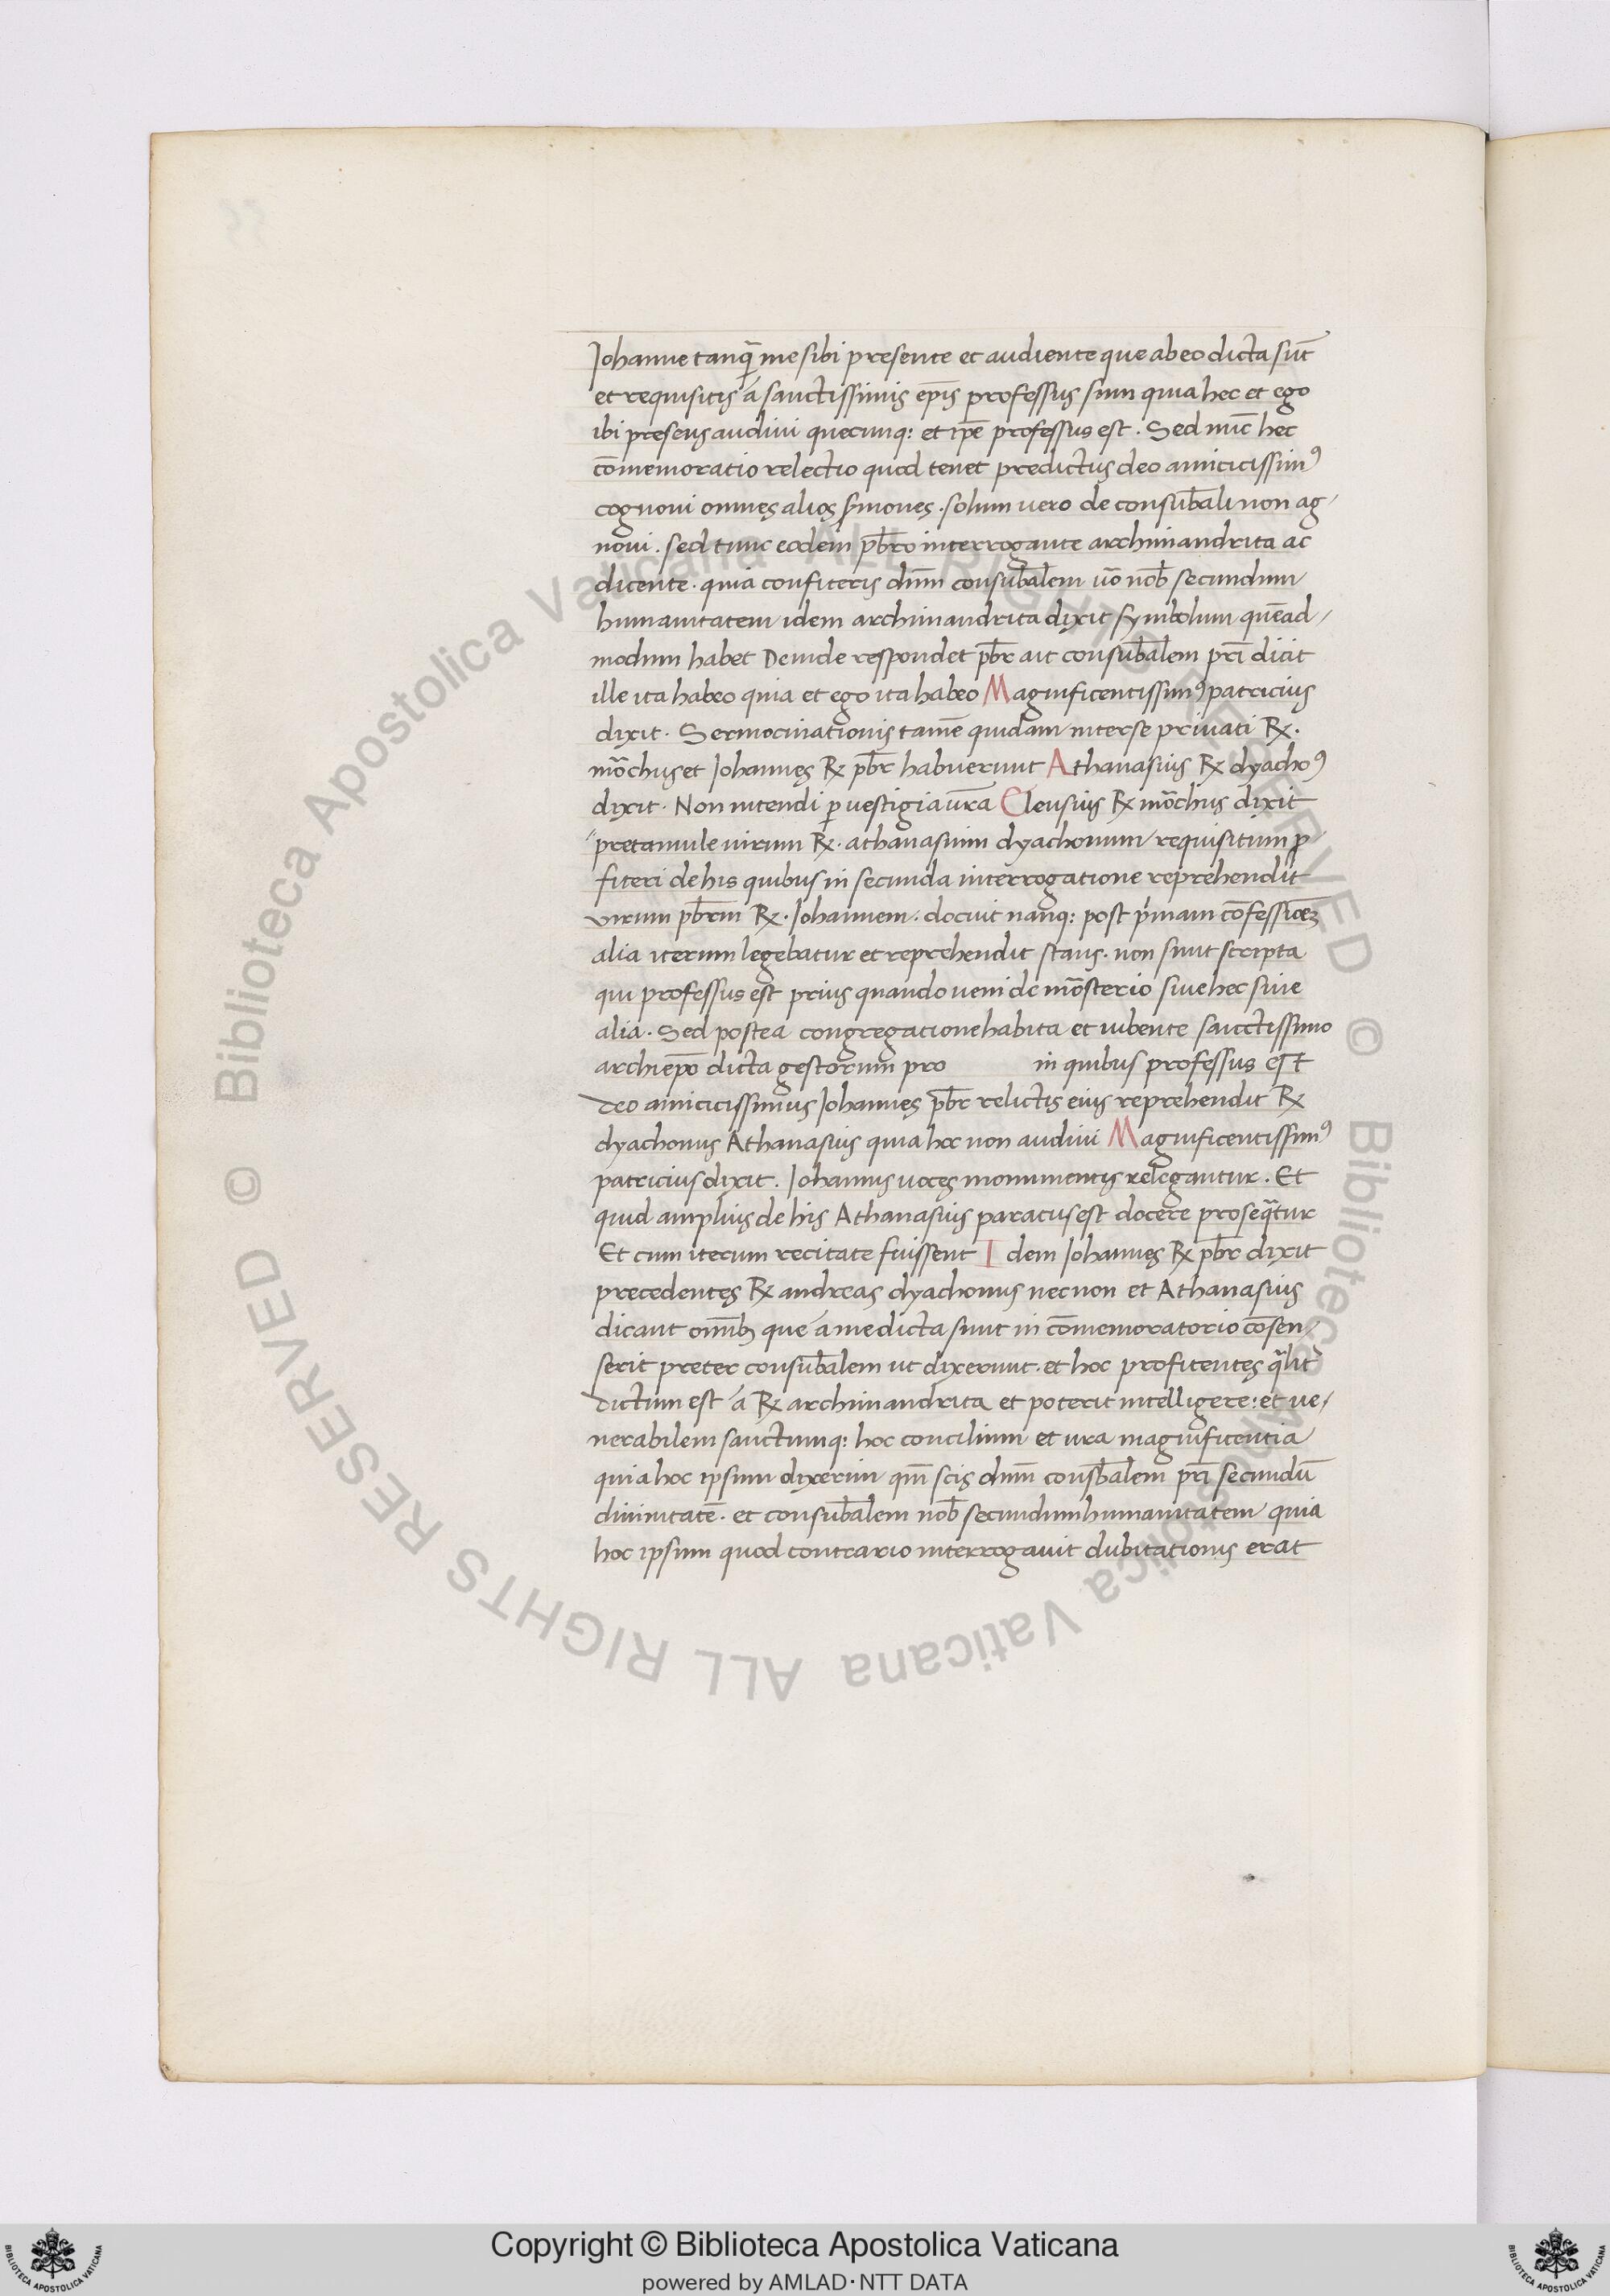 Johanne tanq̃ me sibi presente et audiente que ab eo dicta sūt
et requisitis á sanctissimis ep̄is professus sum quia hec et ego
ibi presens audivi quecunq: et ip̄e professus est. Sed nūc hec
cōmemoratio relectio quod tenet predictus deo amicicissimꝰ
cognovi omnes alios s̄mones. solum uero de consub̄ali non ag-
noui. sed tunc eodem pb̄ro interrogante archimandrita ac
dicente. quia confiteris dn̄m consub̄alem uō nob̄ secundum
humanitatem idem archimandrita dixit symbolum quēad-
modum habet Deinde respondet pb̄r ait consub̄alem pr̄i dicit
ille ita habeo quia et ego ita habeo Magnificentissimꝰ patricius
dixit. Sermocinationis tamē quidam inter se privati ℞.
mōchus et Johannes ℞ pb̄r habuerunt Athanasius ℞ dyachoꝰ
dixit. Non intendi ꝑ uestigia ur̄a Eleusius ℞ mōchus dixit
pretamule uirum ℞. athanasium dyachonum requisitum ꝓ
fiteri de his quibus in secunda interrogatione reprehendit
virum pb̄rm ℞. Johannem. docuit nanq: post p̄mam cōfessiōeꝫ
alia iterum legebatur et reprehendit stans. non sunt scripta
qui professus est prius quando ueni de mōsterio siue hec siue
alia. Sed postea congregatione habita et iubente sanctissimo
archiep̄o dicta gestorum pro in quibus professus est
deo amicicissimus Johannes pb̄r relictis eius reprehendit ℞
dyachonus Athanasius quia hoc non audiui Magnificentissimꝰ
patricius dixit. Johannis uoces monumentis relegantur. Et
quid amplius de his Athanasius paratus est docere proseq̃tur
Et cum iterum recitate fuissent Idem Johannes ℞ pb̄r dixit
precedentes ℞ andreas dyachonus necnon et Athanasius
dicant omīb; que á me dicta sunt in cōmemoratorio cōsen-
serit preter consub̄alem ut dixerunt. et hoc profitentes q̃lit̄
dictum est á ℞ archimandrita et poterit intelligere: et ue-
nerabilem sanctumq: hoc concilium et ur̄a magnificentia
quia hoc ipsum dixerim qm̄ scis dn̄m consb̄alem pr̄i secundū
diuinitatē. et consub̄alem nob̄ secundum humanitatem quia
hoc ipsum quod contrario interrogauit dubitationis erat
© Biblioteca Apostolica Vaticana ALL RIGHTS RESERVED © Biblioteca Apostolica Vaticana ALL RIGHTS RESERVED
Copyright © Biblioteca Apostolica Vaticana
powered by AMLAD·NTT DATA
BIBLIOTECA APOSTOLICA VATICANA
BIBLIOTECA APOSTOLICA VATICANA